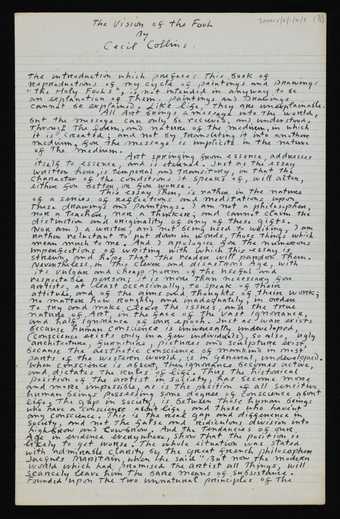 The Vision of the Fool
By
Cecil Collins.
The introduction which prefaces this book of
reproductions of my cycle of paintings and Drawings
"the Holy Fools", is not intended in anyway to be
an explanation of them. paintings and Drawings
cannot be explained, like life, They are unexplainable.
All Art brings a message into the world,
but the message can only be received, and understood,
through the form, and nature of the medium, in which
it is created; and not by translating it into another
medium, for the message is implicit in the nature
of the medium.
Art springing from essence, addresses
itself to essence, and is eternal. Just as the essay
written here, is temporal and transitory, in that the
character of the conditions it speaks of, will alter,
either for better, or for worse.
This essay then, is rather in the nature
of a series of reflections and meditations upon
these drawings and paintings. I am not a philosopher,
nor a Teacher, nor a thinker; and cannot claim the
distinction and originality of any of these gifts.
Nor am I a writer, and not being used to writing, I am
rather reluctant to put down in words, those things which
mean much to me. And I apologise for the numerous
imperfections of writing with which this essay is
strewn, and hope that the reader will pardon them.
Nevertheless, in this clever and disastrous Age, with
its vulgar and cheap norm of the useful and
respectable person, it is more than necessary for
artists, at least occasionally, to speak of their
attitude, and of the aims and thoughts of their work;
no matter how roughly and inadequately, in order
to try and make clear the issues, and the true
nature of Art in the face of the vast ignorance,
and half ignorance of our epoch. Just as wars exist
because human conscience is universally undeveloped,
(conscience exists only in a few individuals), so also, ugly
architecture, furniture, pictures and sculpture exist,
because the aesthetic conscience of mankind in most
parts of the western world, is in general, undeveloped.
When conscience is absent, then ignorance becomes active,
and dictates the rules of life. Thus the historical
position of the artist in society, has become more
and more impossible, as is the position of all sensitive
human beings possessing some degree of conscience about
life. The gap in society, is between those human beings
who have a conscience about life, and those who haven't
any conscience. This is the real gap and difference in
society, and not the false and ridiculous division into
highbrow and lowbrow. And the tendencies of our
Age in evidence everywhere, show that the position is
likely to get worse. The whole situation was stated
with admirable clarity by the great french philosopher
Jacques Maritain, when he said. 'But now the modern
world which had promised the artist all things, will
scarcely leave him the bare means of subsistance.
Founded upon the two unnatural principles of the